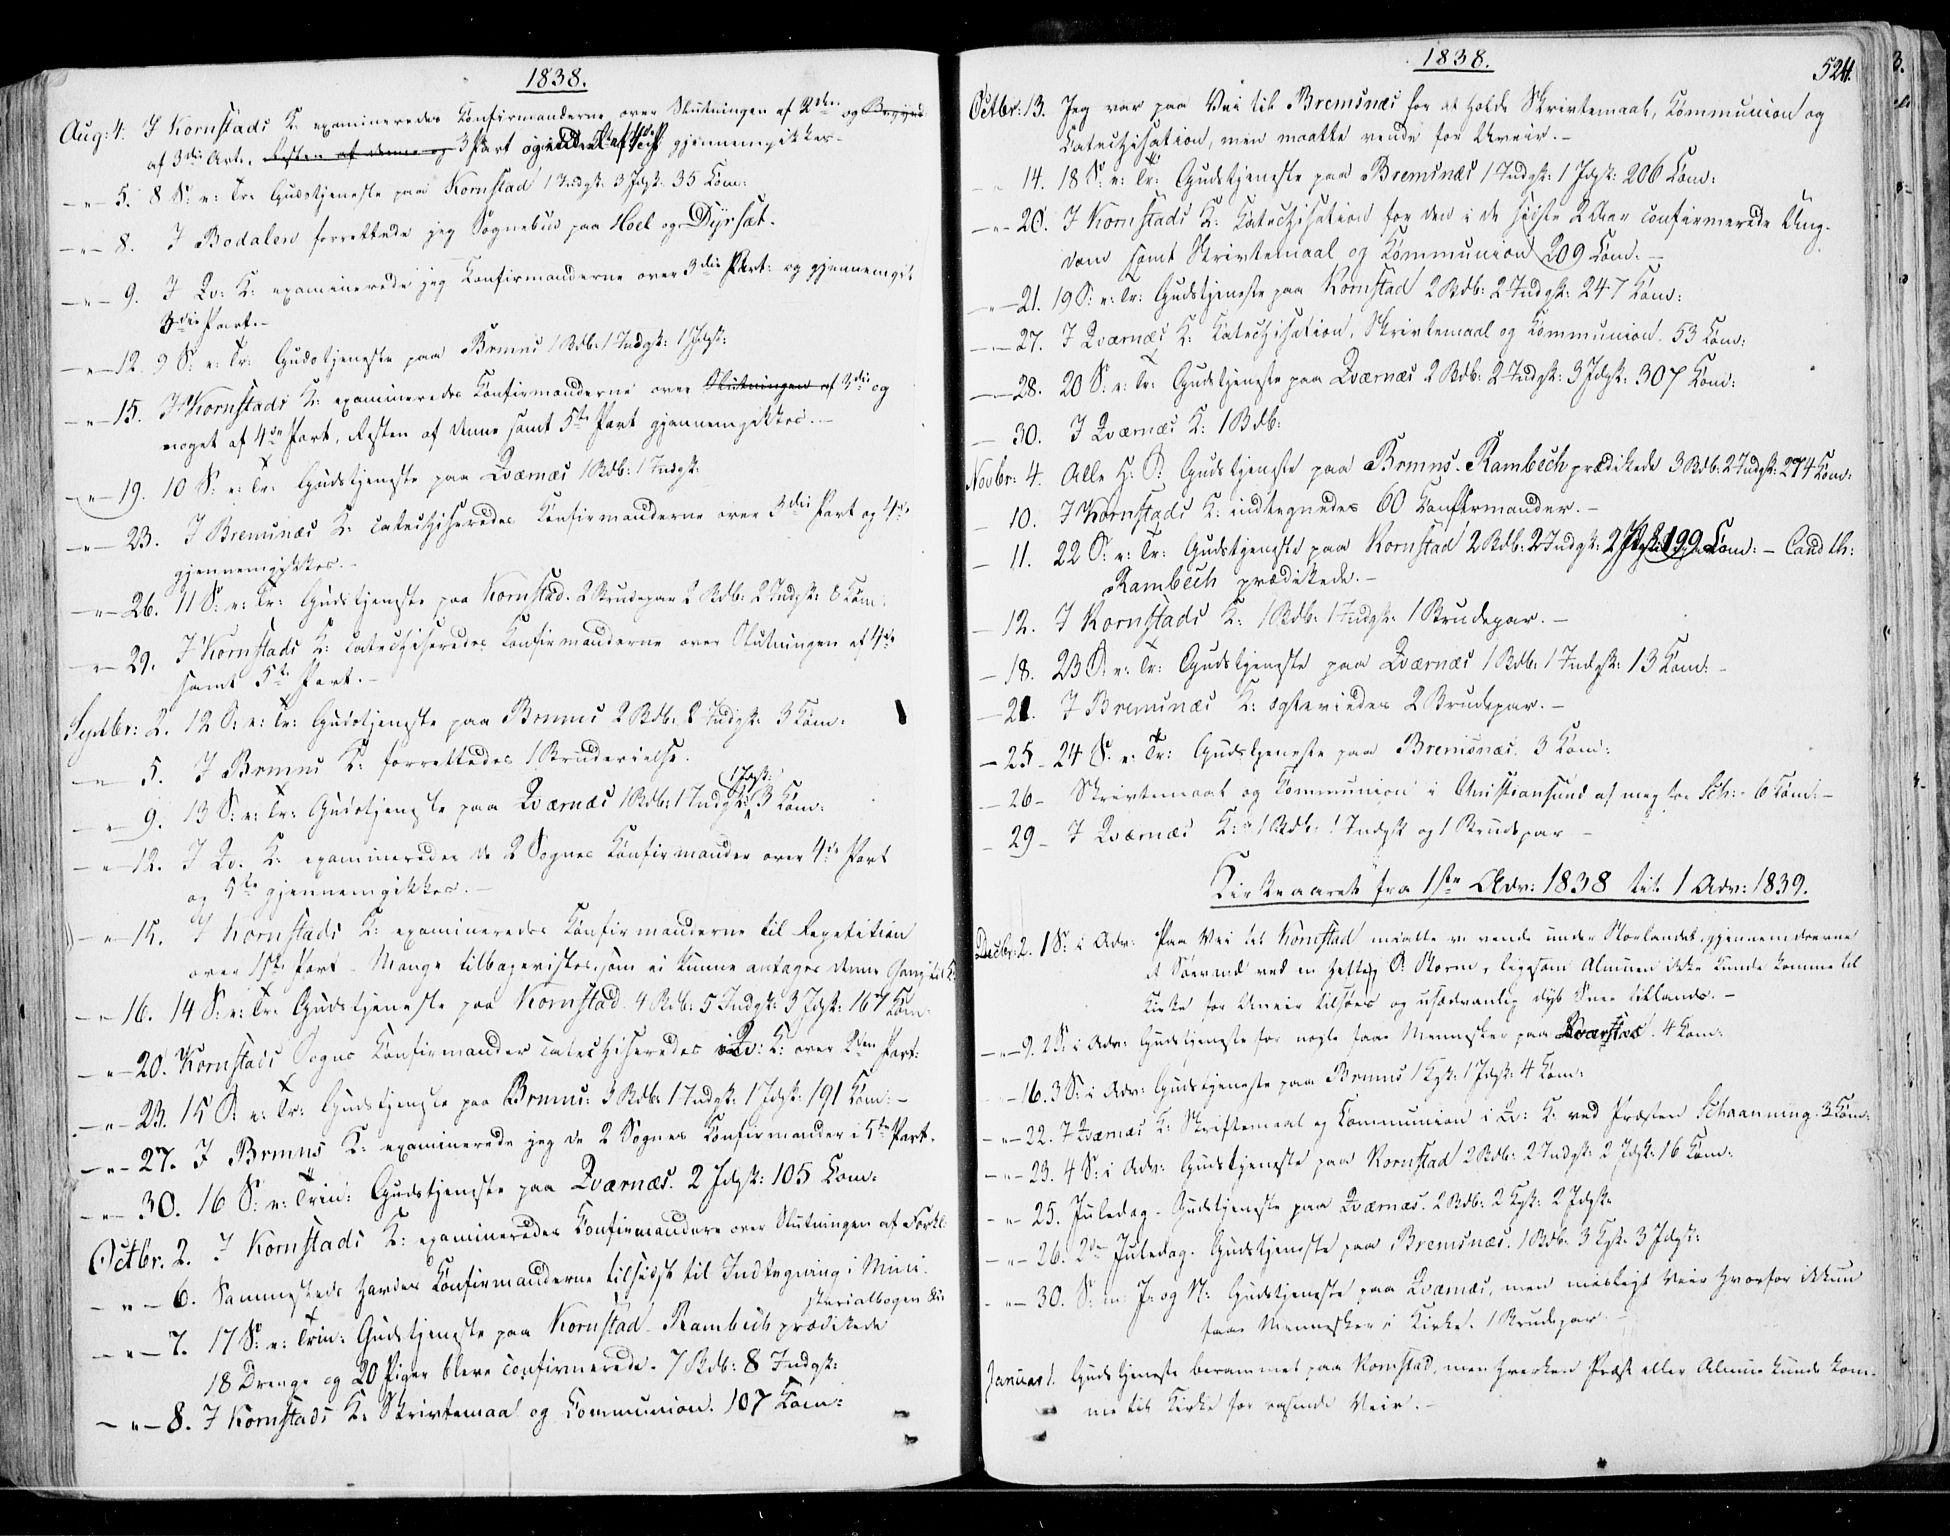 1838.
Aug: 4. I Kornstads K: examineredes Confirmanderne over Slutningen af 2den og
af 3die Art. Resten af denne og 3 Part gjennemgikkes.
— " — 5. 8 S: e: Tr: Gudstjeneste paa Kornstad 1 Indgk: 3 Jdgk: 35 Com:
— " — 8. I Bodalen forrettede jeg Sognebud paa Hoel og Dyrsæt.
— " — 9. I Qv: K: examinerede jeg Confirmanderne over 3die Part: og gjennemgik
3die Part. —
— " — 12. 9 S: e: Tr: Gudstjeneste paa Brmns 1 Bdb: 1 Indgk: 1 Jdgk:
— " — 15. I Kornstads K: examineredes Confirmanderne over Slutningen af 3die og
noget af 4de Part, Resten af denne samt 5te Part gjennemgikkes. —
— " — 19. 10 S: e: Tr: Gudstjeneste paa Qværnæs 1 Bdb: 1 Indgk:
— " — 23. I Bremsnæs K: catechiseredes Confirmanderne over 3die Part og 4de
gjennemgikkes. —
— " — 26. 11 S: e: Tr: Gudstjeneste paa Kornstad. 2 Brudepar 2 Bdb: 2 Indgk: 8 Com:
— " — 29. I Kornstads K: catechiseredes Confirmanderne over Slutningen af 4de
samt 5te Part. —
Septbr: 2. 12 S: e: Tr: Gudstjeneste paa Brmns 2 Bdb: 2 Indgk: 3 Com:
— " — 5. I Brmns K: forrettedes 1 Brudevielse.
1 Jdgk:
— " — 9. 13 S: e: Tr: Gudstjeneste paa Qværnæs 1 Bdb: 1 Indgk: 3 Com:
— " — 12. I Qv. K: examineredes de 2 Sognes Confirmander over 4de Part
og 5te gjennemgikkes. —
— " — 15. I Kornstads K: examineredes Confirmanderne til Repetition
over 1ste Part — Mange tilbagevistes, som ei kunne antages denne Gang til K:
— " — 16. 14 S: e: Tr: Gudstjeneste paa Kornstad. 4 Bdb: 5 Indgk: 3 Jdgk: 167 Com:
— " — 20. Kornstads Sogns Confirmander catechiseredes i Qv: K: over 2den Part:
— " — 23. 15 S: e: Tr: Gudstjeneste paa Brmns: 3 Bdb: 1 Indgk: 1 Jdgk: 191 Com: —
— " — 27. I Brmns K: examinerede jeg de 2 Sognes Confirmander i 5te Part.
— " — 30. 16 S: e: Trin: Gudstjeneste paa Qværnæs. 2 Jdgk: 105 Com:
Octbr. 2. I Kornstads K: examineredes Confirmanderne over Slutningen af Forkl:
— " — 6. Sammesteds havdes Confirmanderne tilsidst til Indtegning i Mini-
sterialbogen
— " — 7. 17 S: e: Trin: Gudstjeneste paa Kornstad — Rambech prædikede
18 Drenge og 20 Piger bleve confirmerede. 7 Bdb: 8 Indgk:
— " — 8. I Kornstads K: Skrivtemaal og Communion. 107 Com:
1838.
524.
Octbr: 13. Jeg var paa Vei til Bremsnæs for at holde Skrivtemaal, Communion og
Catechisation, men maatte vende for Uveir. —
— " 14. 18 S: e: Tr: Gudstjeneste paa Bremsnæs 1 Indgk: 1 Jdgk: 206 Com:
— " — 20. I Kornstads K: Catechisation for den i de sidste 2 Aar confirmerede Ung-
dom samt Skrivtemaal og Communion 209 Com: —
— " — 21. 19 S: e: Tr: Gudstjeneste paa Kornstad 2 Bdb: 2 Indgk: 247 Com:
— " — 27. I Qværnæs K: Catechisation, Skrivtemaal og Communion. 53 Com:
— " — 28. 20 S: e: Tr: Gudstjeneste paa Qværnæs 2 Bdb: 2 Indgk: 3 Jdgk: 307 Com:
— 30. I Qværnæs K: 1 Bdb:
Novbr: 4. Alle H: D: Gudstjeneste paa Brmns. Rambech prædikede 3 Bdb: 2 Indgk: 274 Com:
— 10. I Kornstads K: indtegnedes 60 Confirmander. —
— 11. 22 S: e: Tr: Gudstjeneste paa Kornstad 2 Bdb: 2 Indgk: 2 Jdgk: 199 Com: — Cand th:
Rambech prædikede. —
— 12. I Kornstads K: 1 Bdb: 1 Indgk: 1 Brudepar. —
— 18. 23 S: e: Tr: Gudstjeneste paa Qværnæs 1 Bdb: 1 Indgk: 13 Com: —
— 21. I Bremsnæs K: ægteviedes 2 Brudepar. —
— 25 — 24 S: e: Tr: Gudstjeneste paa Bremsnæs. 3 Com:
— 26 — Skrivtemaal og Communion i Christiansund af mig for Sch: — 6 Com: —
— 29 — I Qværnæs K: 1 Bdb: 1 Indgk og 1 Brudepar —
Kirkeaaret fra 1ste Adv: 1838 til 1 Adv: 1839.
Decbr: 2. 1 S: i Adv: Paa Vei til Kornstad maatte vi vende under Storlandet, gjennemdrevne
af Søevand ved en heftig S: Storm, ligesom Almuen ikke kunde komme til
Kirke for Uveir tilsøes og usædvanlig dyb Snee tillands. —
— " — 9. 2 S: i Adv: Gudstjeneste for nogle faae Mennesker paa 4 Com:
— 16. 3 S: i Adv: Gudstjeneste paa Brmns 1 Kgk: 1 Jdgk: 4 Com:
— " — 22. I Qværnæs K: Skriftemaal og Communion i Qv: K: ved Præsten Schaanning. 3 Com:
— " — 23. 4 S: i Adv: Gudstjeneste paa Kornstad 2 Bdb: 2 Indgk: 2 Jdgk: 16 Com:
— " — 25. Juledag — Gudstjeneste paa Qværnæs. 2 Bdb: 2 Kgk: 2 Jdgk
— " — 26. 2den Juledag. Gudstjeneste paa Bremsnæs. 1 Bdb: 3 Kgk: 3 Jdgk:
— " — 30. S: m: J. og N: Gudstjeneste paa Qværnæs, men misligt Veir hvorfor ikkun
faae Mennesker i Kirke. 1 Brudepar. —
Januar 1. Gudstjeneste berammet paa Kornstad, men hverken Præst eller Almue kunde kom-
me til Kirke for rasende Veir. —